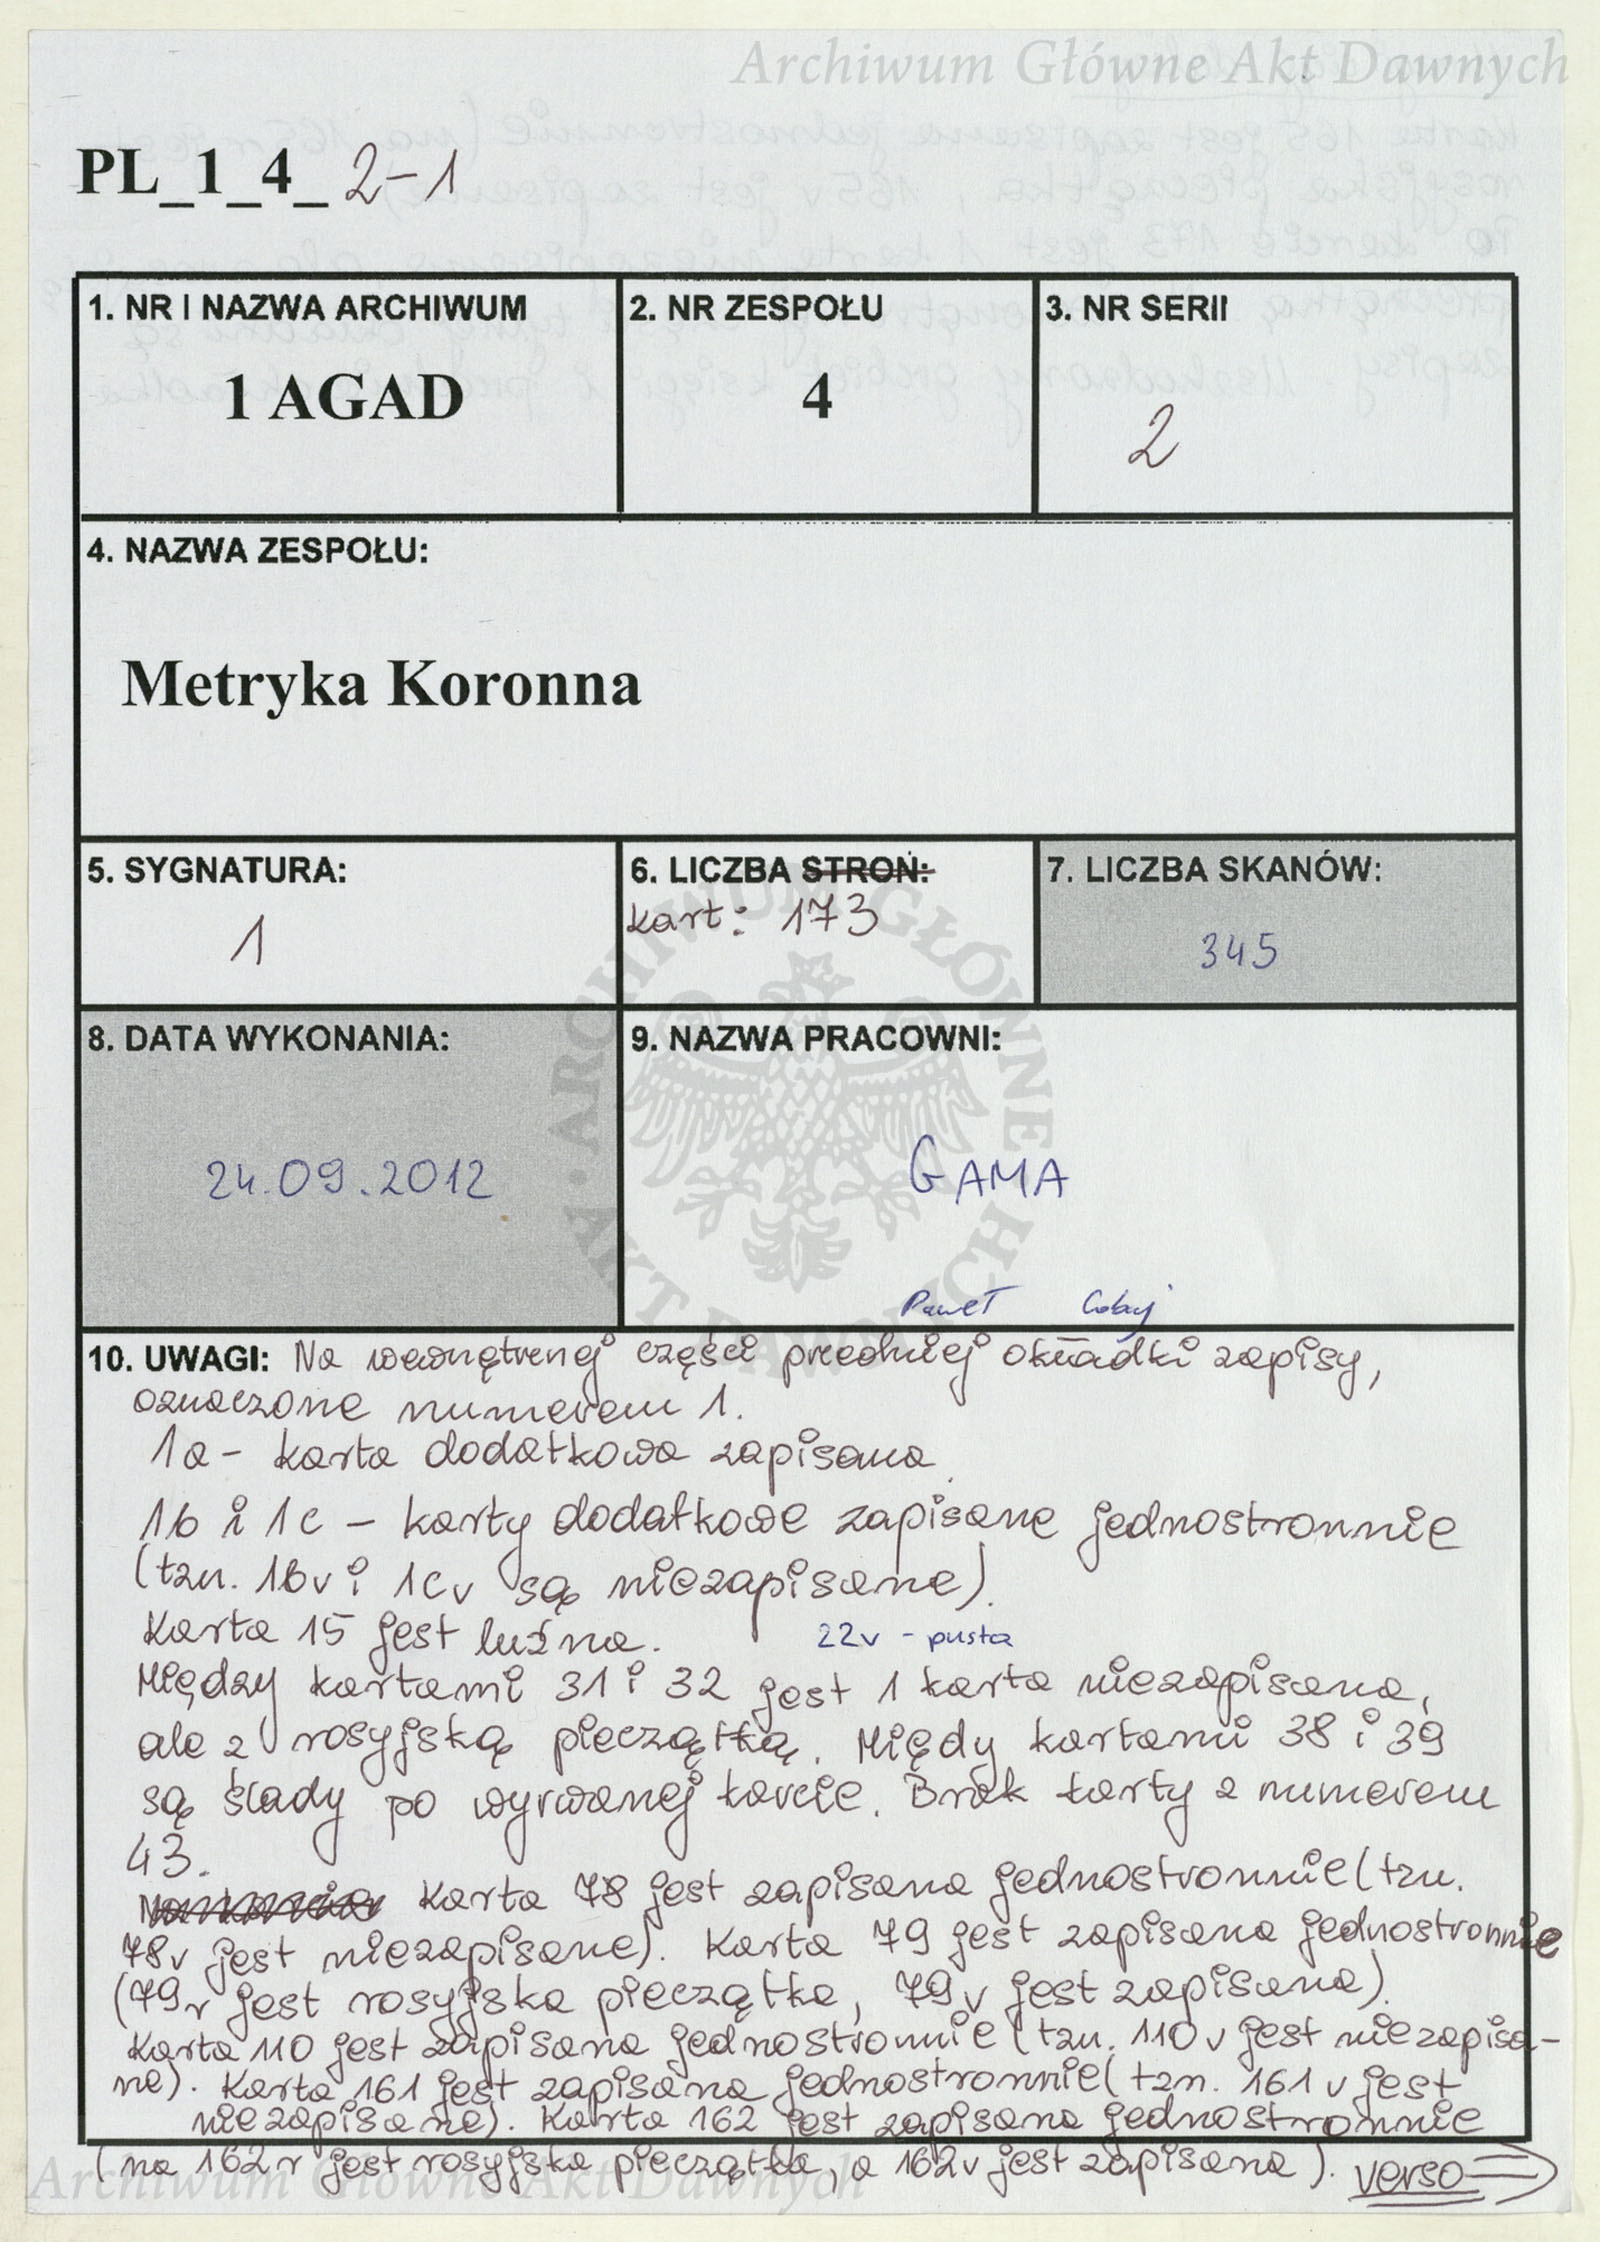 Archiwum Główne Akt Dawnych
PL_1_4_ 2-1
1. NR I NAZWA ARCHIWUM
1 AGAD
2. NR ZESPOŁU
4
3. NR SERII
2
4. NAZWA ZESPOŁU:
Metryka Koronna
5. SYGNATURA:
1
6. LICZBA STRON:
kart: 173
7. LICZBA SKANÓW:
345
8. DATA WYKONANIA:
24.09.2012
9. NAZWA PRACOWNI:
GAMA
Paweł
10. UWAGI: Na wewnętrznej części przedniej okładki zapisy,
oznaczone numerem 1.
1a - karta dodatkowa zapisana.
1b i 1c - karty dodatkowe zapisane jednostronnie
(tzn. 1bv i 1cv są niezapisane).
Karta 15 jest luźna. 22v - pusta
Między kartami 31 i 32 jest 1 karta niezapisana,
ale z rosyjską pieczątką. Między kartami 38 i 39
są ślady po wyrwanej karcie. Brak karty z numerem
43.
Karta 78 jest zapisana jednostronnie (tzn.
78v jest niezapisane). Karta 79 jest zapisana jednostronnie
(79r jest rosyjska pieczątka, 79v jest zapisana).
Karta 110 jest zapisana jednostronnie (tzn. 110v jest niezapisa-
ne). Karta 161 jest zapisana jednostronnie (tzn. 161v jest
niezapisane). Karta 162 jest zapisana jednostronnie
(na 162r jest rosyjska pieczątka, a 162v jest zapisana). verso
Archiwum Główne Akt Dawnych
ARCHIWUM GŁÓWNE AKT DAWNYCH